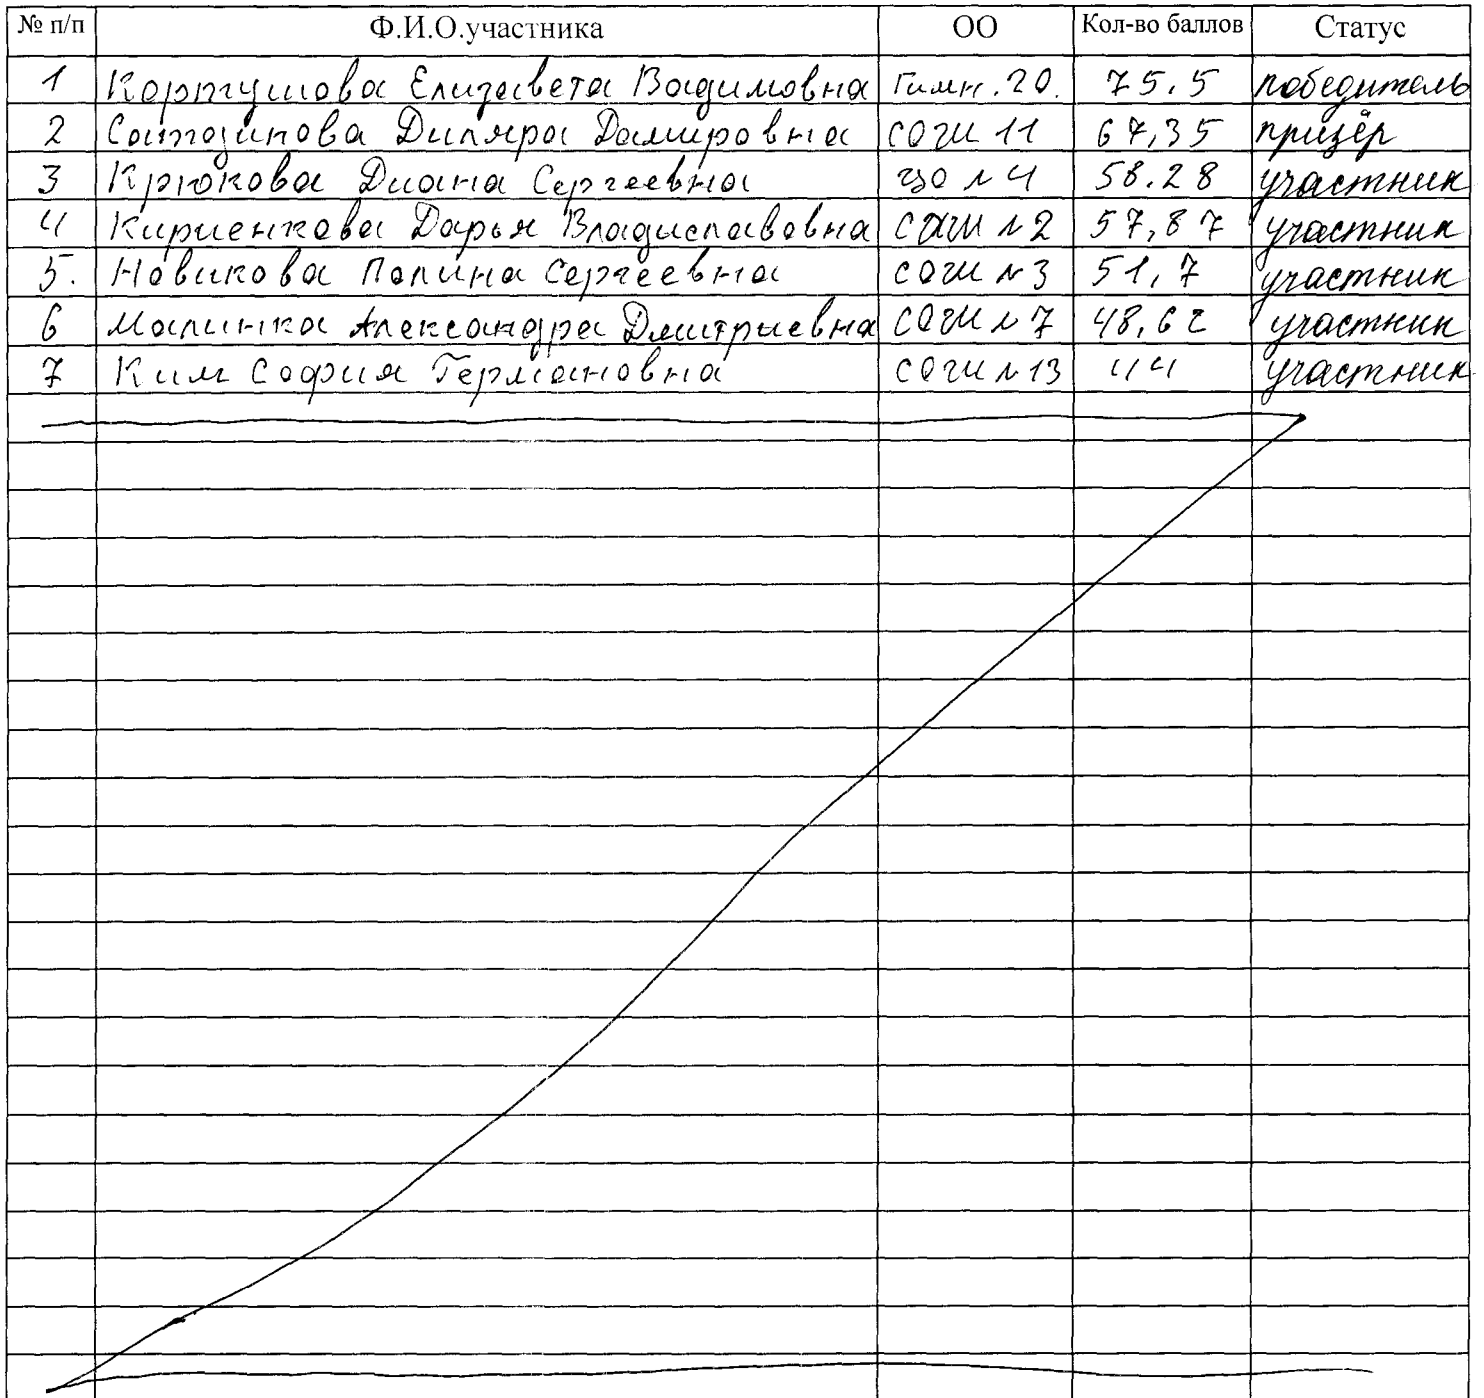 № п/п Ф.И.О.участника ОО Кол-во баллов Статус
1 Картушова Елизавета Вадимовна Гимн. 20. 75.5 победитель
2 Сатдинова Диляра Дамировна СОШ 11 67,35 призёр
3 Крюкова Диана Сергеевна ЦО № 4 58.28 участник
4 Кириенкова Дарья Владиславовна СОШ № 2 57,87 участник
5. Новикова Полина Сергеевна СОШ № 3 51,7 участник
6 Малинка Александра Дмитриевна СОШ № 7 48,62 участник
7 Ким София Германовна СОШ № 13 44 участник